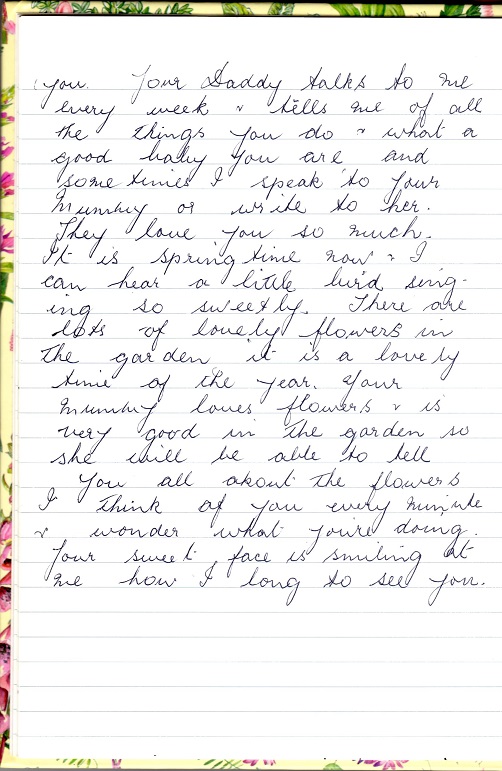 you. Your Daddy talks to me
every week & tells me of all
the things you do & what a
good baby you are and
sometimes I speak to your
Mummy or write to her.
They love you so much.
It is spring time now & I
can hear a little bird sing-
ing so sweetly. There are
lots of lovely flowers in
the garden it is a lovely
time of the year. Your
Mummy loves flowers & is
very good in the garden so
she will be able to tell
you all about the flowers
I think of you every minute
& wonder what you're doing.
Your sweet face is smiling at
me how I long to see you.